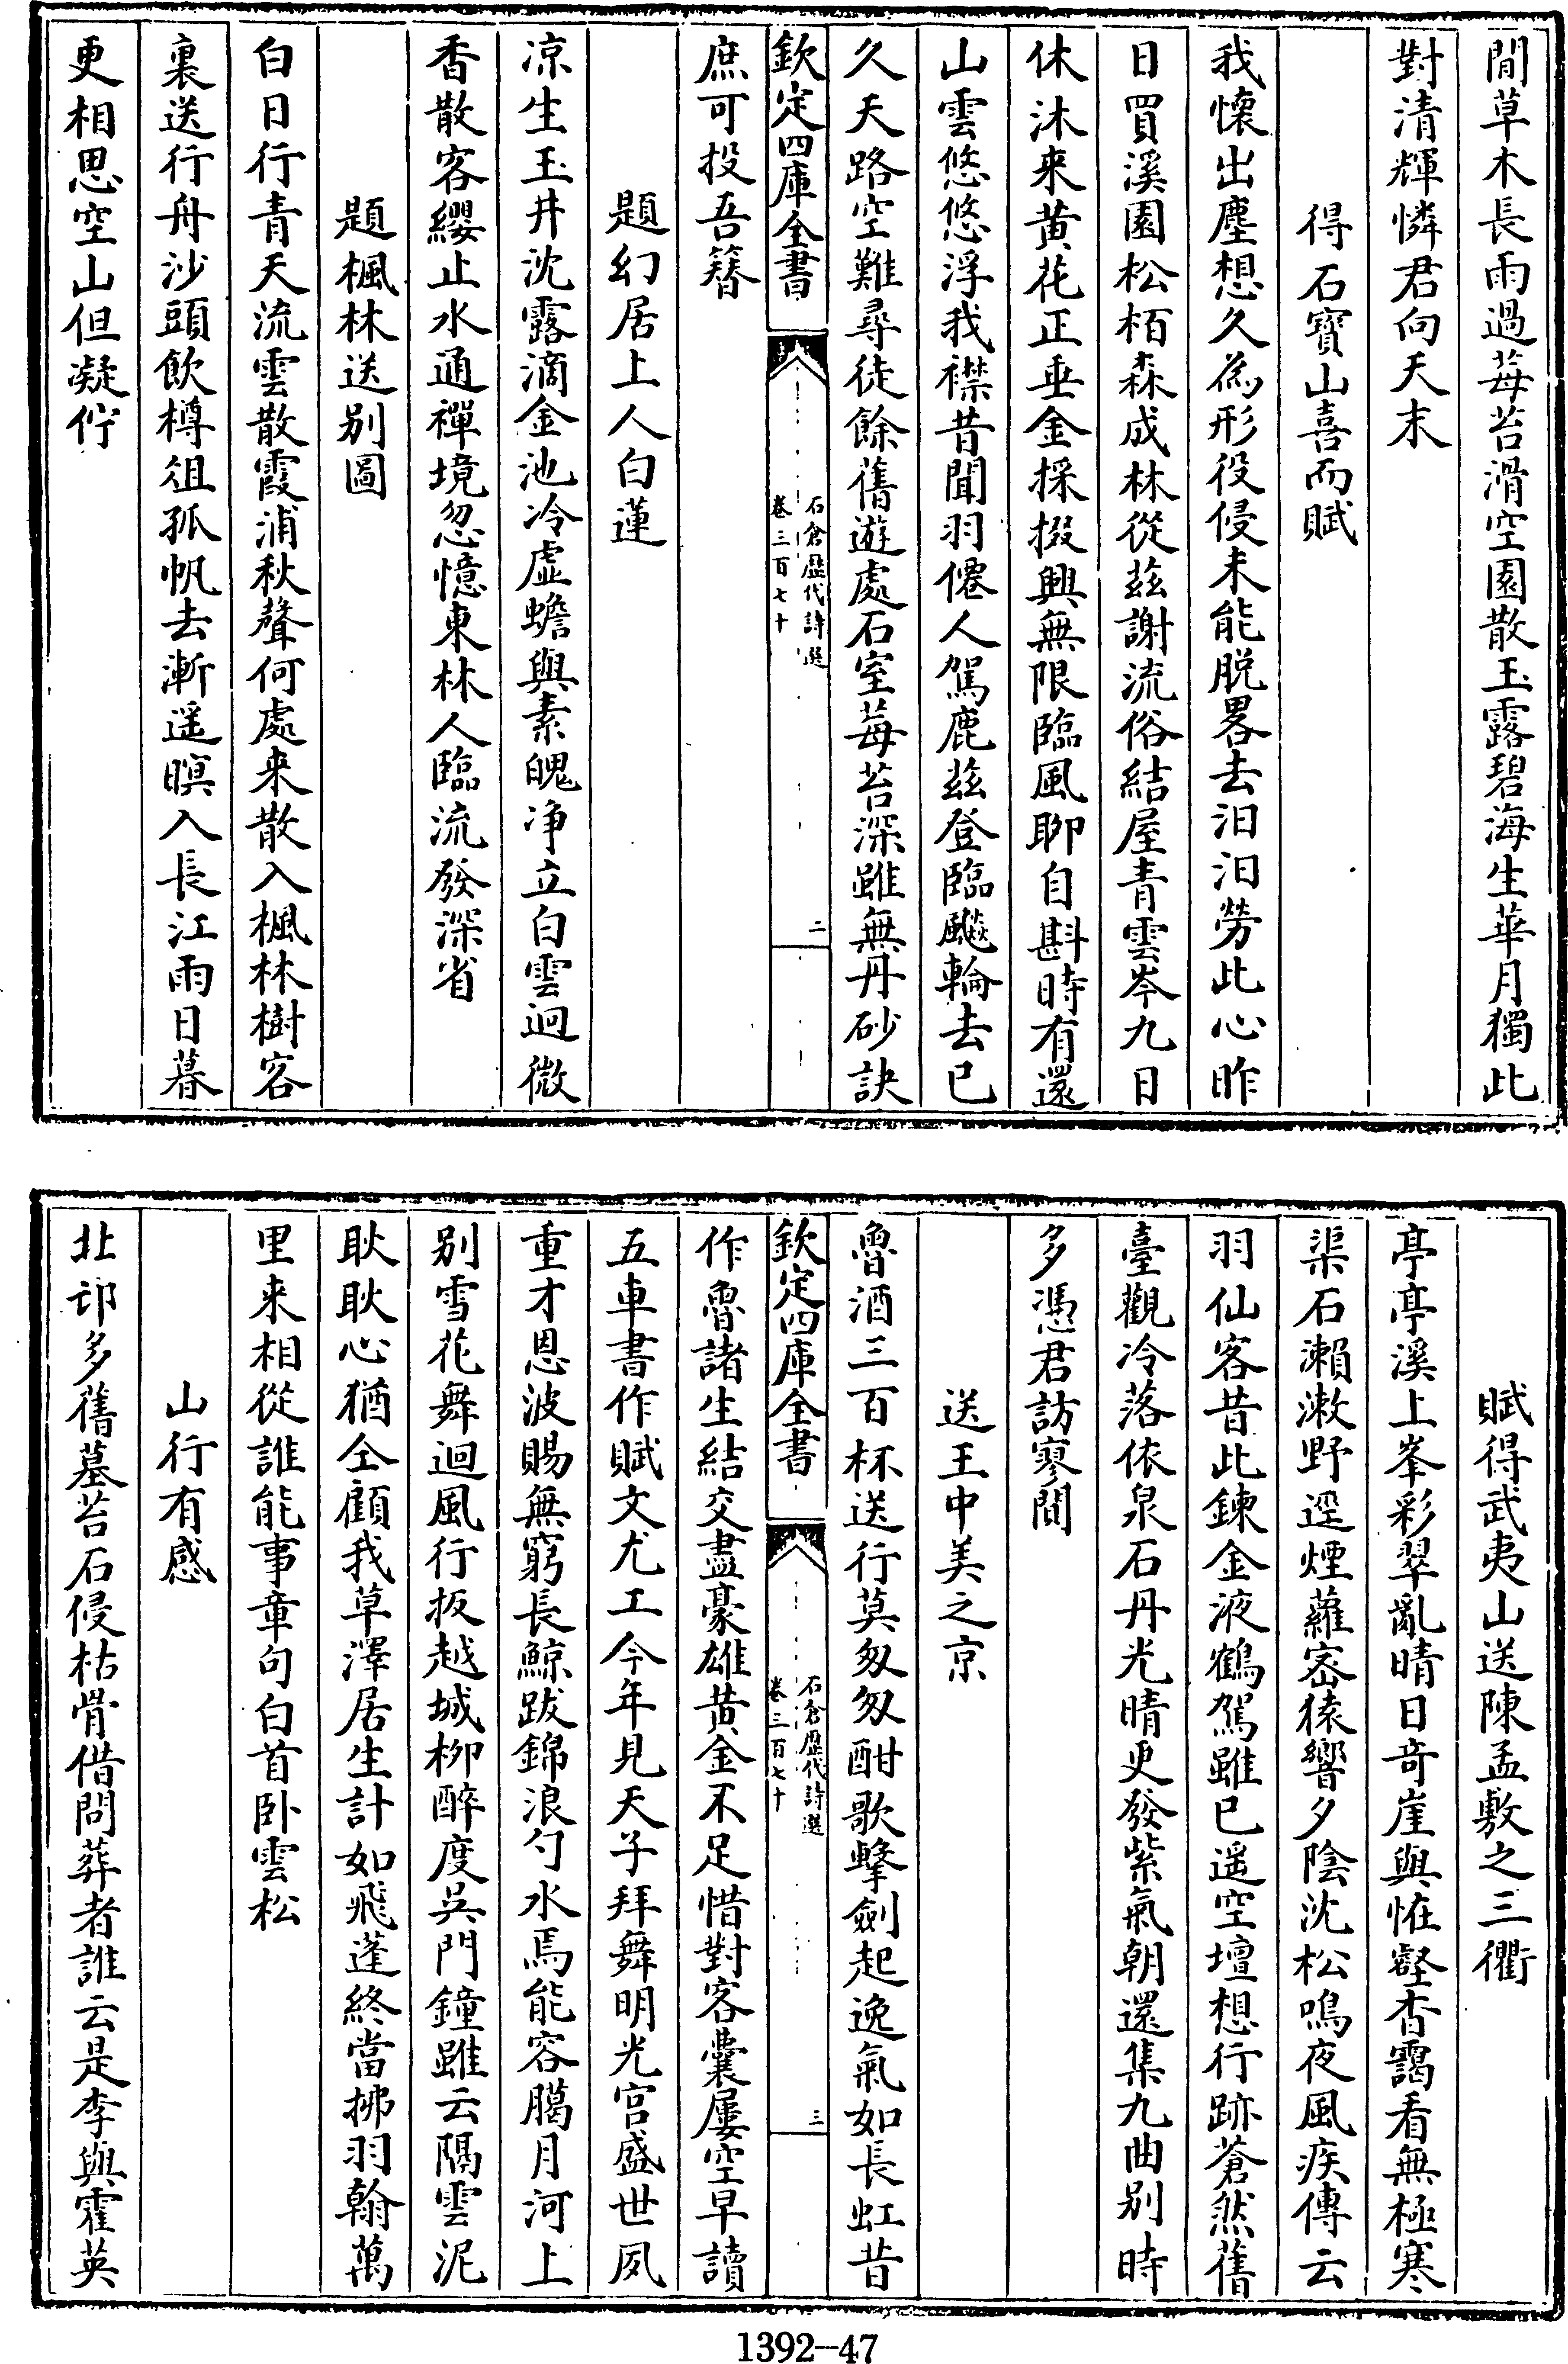 間草木長雨過莓苔滑空園散玉露碧海生華月獨此
對清輝憐君向天末
得石寶山喜而賦
我懷出塵想久為形役侵未能脱畧去汨汨勞此心昨
日買溪園松栢森成林從兹謝流俗結屋青雲岑九日
休沐来黄花正垂金採掇興無限臨風聊自斟時有還
山雲悠悠浮我襟昔聞羽僊人駕鹿兹登臨飈輪去已
久天路空難尋徒餘舊遊處石室莓苔深雖無丹砂訣
欽定四庫全書
石倉歷代詩選
卷三百七十
二
庶可投吾簪
題幻居上人白蓮
凉生玉井沈露滴金池冷虛蟾與素魄净立白雲迥微
香散客纓止水通禪境忽憶東林人臨流發深省
題楓林送别圖
白日行青天流雲散霞浦秋聲何處来散入楓林樹客
裏送行舟沙頭飲樽俎孤帆去漸遥暝入長江雨日暮
更相思空山但凝佇
賦得武夷山送陳孟敷之三衢
亭亭溪上峯彩翠亂晴日奇崖與恠壑杳靄看無極寒
渠石瀬漱野逕煙蘿宻猿響夕陰沈松鳴夜風疾傳云
羽仙客昔此鍊金液鶴駕雖已遥空壇想行跡蒼然舊
臺觀冷落依泉石丹光晴更發紫氣朝還集九曲别時
多憑君訪寥閴
送王中美之京
魯酒三百杯送行莫匆匆酣歌擊劍起逸氣如長虹昔
欽定四庫全書
石倉歷代詩選
卷三百七十
三
作魯諸生結交盡豪雄黄金不足惜對客囊屢空早讀
五車書作賦文尤工今年見天子拜舞明光宫盛世夙
重才恩波賜無窮長鯨跋錦浪勺水焉能容臈月河上
别雪花舞迴風行扳越城柳醉度吳門鐘雖云隔雲泥
耿耿心猶仝顧我草澤居生計如飛蓬終當拂羽翰萬
里来相從誰能事章句白首卧雲松
山行有感
北邙多舊墓苔石侵枯骨借問葬者誰云是李與霍英
1392-47